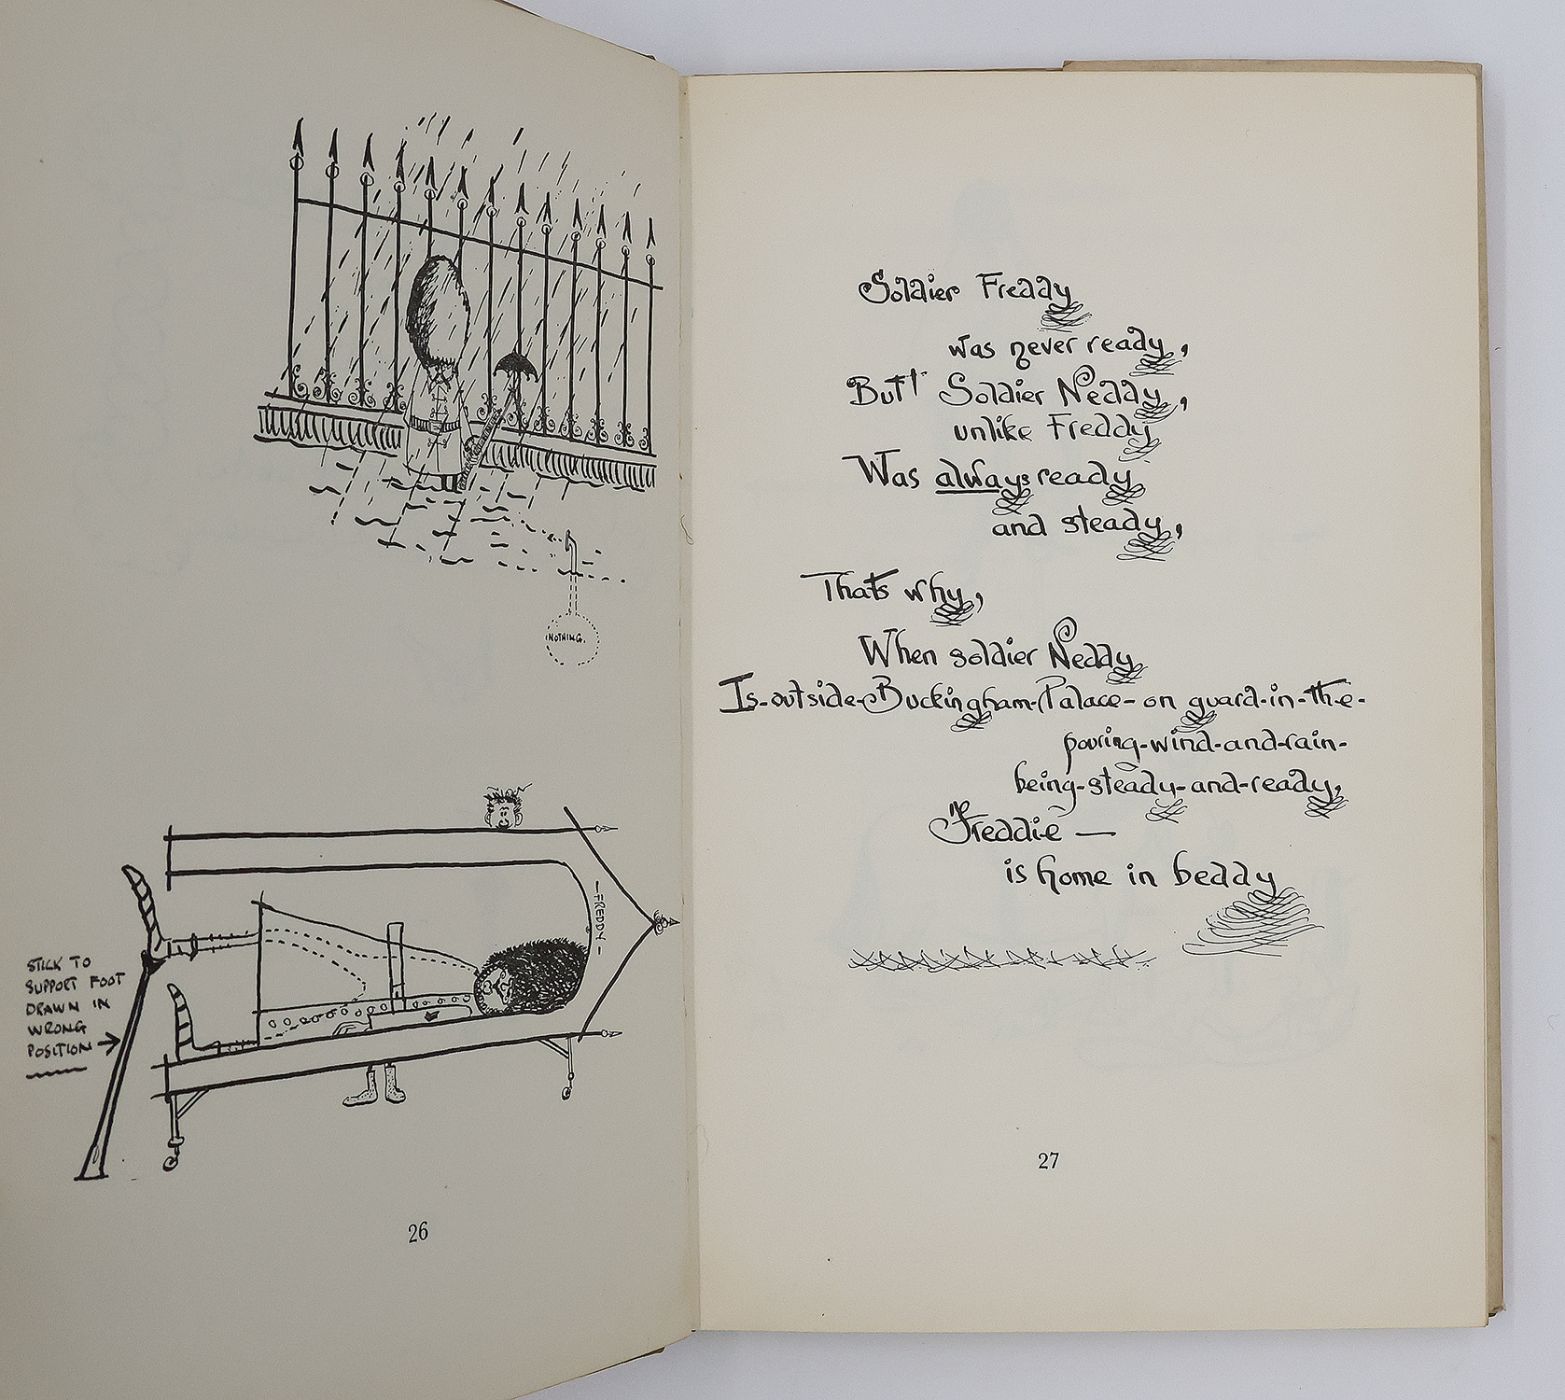 NOTHING.
—FREDDY—
STICK TO
SUPPORT FOOT
DRAWN IN
WRONG
POSITION
26
Soldier Freddy
was never ready,
But! Soldier Neddy,
unlike Freddy
Was always ready
and steady,
Thats why,
When soldier Neddy
Is-outside-Buckingham-Palace-on guard-in-the-
pouring-wind-and-rain-
being-steady-and-ready,
Freddie —
is home in beddy
27